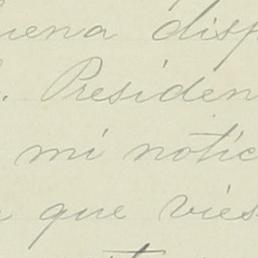 uena disp
. Presiden
mi notic
a que vies